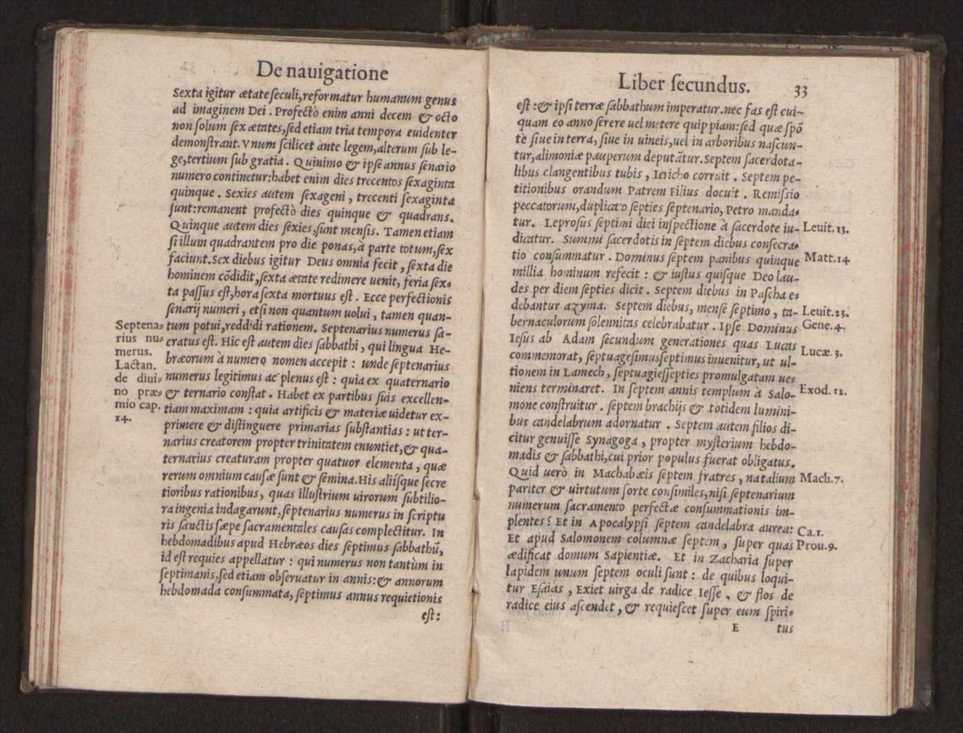 De nauigatione
Sexta igitur ætate seculi, reformatur humanum genus
ad imaginem Dei. Profectò enim anni decem & octo
non solum sex ætates, sed etiam tria tempora euidenter
demonstrant. Vnum scilicet ante legem, alterum sub le-
ge, tertium sub gratia. Quinimo & ipse annus senario
numero continetur: habet enim dies trecentos sexaginta
quinque. Sexies autem sexageni, trecenti sexaginta
sunt: remanent profectò dies quinque & quadrans.
Quinque autem dies sexies, sunt mensis. Tamen etiam
si illum quadrantem pro die ponas, à parte totum, sex
faciunt. Sex diebus igitur Deus omnia fecit, sexta die
hominem cōdidit, sexta ætate redimere uenit, feria sex-
ta passus est, hora sexta mortuus est. Ecce perfectionis
senarij numeri, etsi non quantum uolui, tamen quan-
tum potui, reddidi rationem. Septenarius numerus sa-
cratus est. Hic est autem dies sabbathi, qui lingua He-
bræorum à numero nomen accepit: unde septenarius
numerus legitimus ac plenus est: quia ex quaternario
& ternario constat. Habet ex partibus suis excellen-
tiam maximam: quia artificis & materiæ uidetur ex-
primere & distinguere primarias substantias: ut ter-
narius creatorem propter trinitatem enuntiet, & qua-
ternarius creaturam propter quatuor elementa, quæ
rerum omnium causæ sunt & semina. His aliisque secre
tioribus rationibus, quas illustrium uirorum subtilio-
ra ingenia indagarunt, septenarius numerus in scriptu
ris sanctis sæpe sacramentales causas complectitur. In
hebdomadibus apud Hebræos dies septimus sabbathū,
id est requies appellatur: qui numerus non tantùm in
septimanis, sed etiam obseruatur in annis: & annorum
hebdomada consummata, septimus annus requietionis
est:
Septena-
rius nu-
merus.
Lactan.
de diui-
no præ-
mio cap.
14.
Liber secundus. 33
est: & ipsi terræ sabbathum imperatur. nec fas est cui-
quam eo anno serere uel metere quippiam: sed quæ spō
te siue in terra, siue in uineis, uel in arboribus nascun-
tur, alimoniæ pauperum deputātur. Septem sacerdota-
libus clangentibus tubis, Iericho corruit. Septem pe-
titionibus orandum Patrem Filius docuit. Remissio
peccatorum, duplicato septies septenario, Petro manda-
tur. Leprosus septimi diei inspectione à sacerdote iu-
dicatur. Summi sacerdotis in septem diebus consecra-
tio consummatur. Dominus septem panibus quinque
millia hominum refecit: & iustus quisque Deo lau-
des per diem septies dicit. Septem diebus in Pascha e-
debantur azyma. Septem diebus, mense septimo, ta-
bernaculorum solennitas celebrabatur. Ipse Dominus
Iesus ab Adam secundum generationes quas Lucas
commemorat, septuagesimusseptimus inuenitur, ut ul-
tionem in Lamech, septuagiesssepties promulgatam ue-
niens terminaret. In septem annis templum à Salo-
mone construitur. septem brachijs & totidem lumini-
bus candelabrum adornatur. Septem autem filios di-
citur genuisse Synagoga, propter mysterium hebdo-
madis & sabbathi, cui prior populus fuerat obligatus.
Quid uerò in Machabæis septem fratres, natalium
pariter & uirtutum sorte consimiles, nisi septenarium
numerum sacramento perfectæ consummationis im-
plentes? Et in Apocalypsi septem candelabra aurea:
Et apud Salomonem columnæ septem, super quas
ædificat domum Sapientiæ. Et in Zacharia super
lapidem unum septem oculi sunt: de quibus loqui-
tur Esaias, Exiet uirga de radice Iesse, & flos de
radice eius ascendet, & requiescet super eum spiri-
E tus
Leuit. 13.
Matt. 14
Leuit. 23.
Gene. 4.
Lucæ. 3.
Exod. 12.
Mach. 7.
Ca. 1.
Prou. 9.